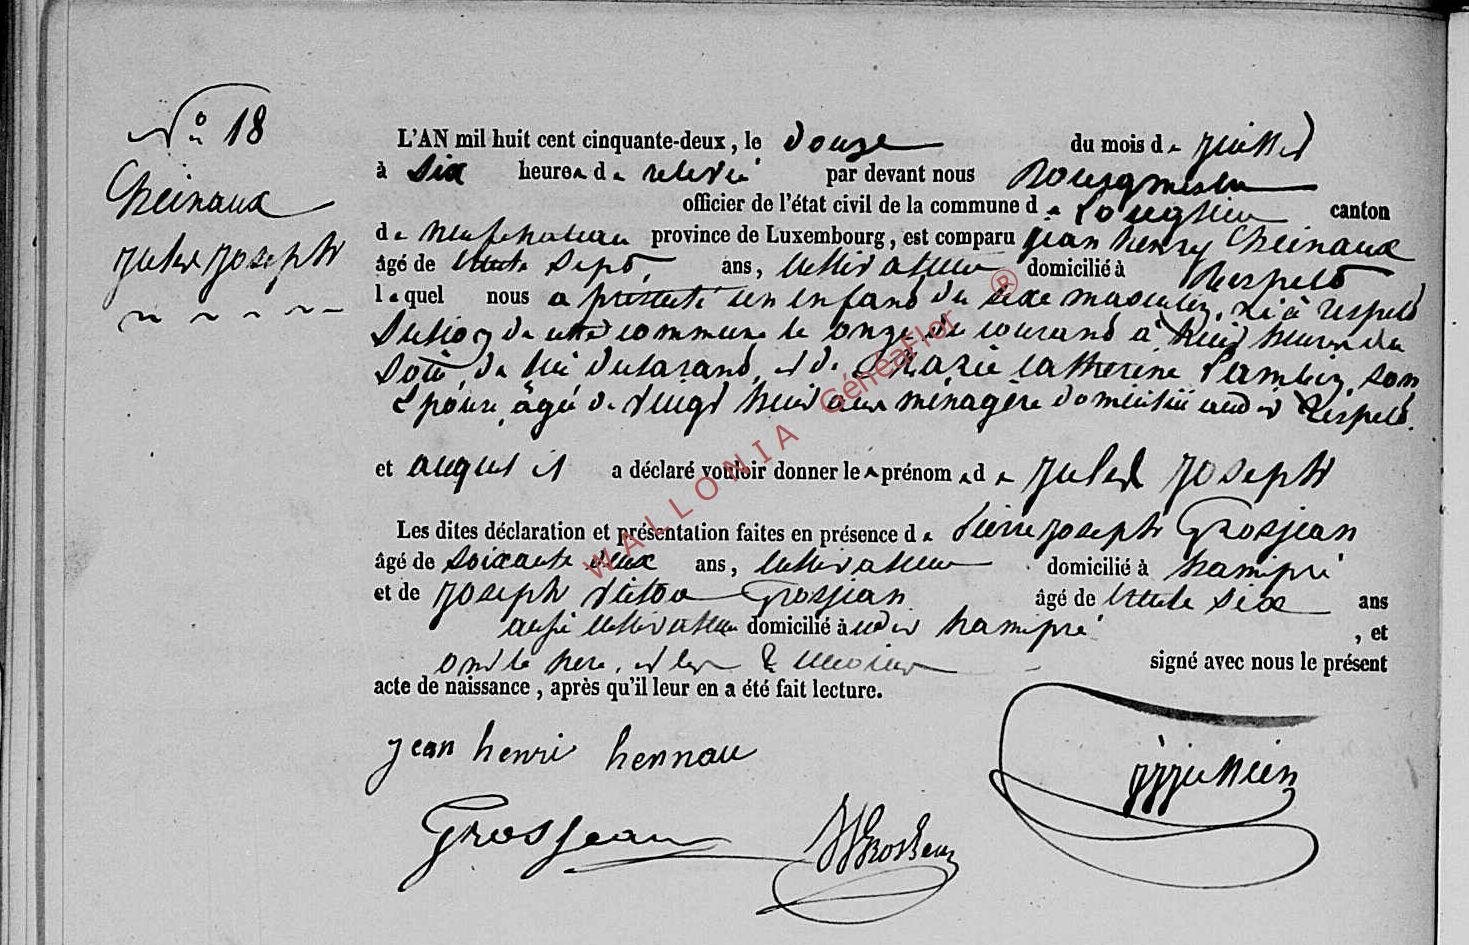 N° 18
Cheinaux
Jules Joseph
L'AN mil huit cent cinquante-deux, le douze du mois de juillet
à six heures de relevée par devant nous Bourgmestre
officier de l'état civil de la commune de Longlier canton
de Neufchateau province de Luxembourg, est comparu jean henry Cheinaux
âgé de trente sept, ans, cultivateur domicilié à Respelt
lequel nous a présenté un enfant du sexe masculin, né à respelt
section de cette commune le onze du courant à huit heures du
soir, de lui déclarant, et de Marie Catherine Lambin, son
Epouse, âgée de vingt huit ans ménagère domiciliée audit Respelt.
et auquel il a déclaré vouloir donner les prénoms de Jules Joseph
Les dites déclaration et présentation faites en présence de Pierre joseph Grosjean
âgé de soixante deux ans, cultivateur domicilié à hamipré
et de Joseph Victor Grosjean âgé de trente six ans
aussi cultivateur domicilié audit hamipré , et
ont le père, et les témoins signé avec nous le présent
acte de naissance, après qu'il leur en a été fait lecture.
jean henri hennau
Grosjean
Grosjean
WALLONIA GénéaFlor ®